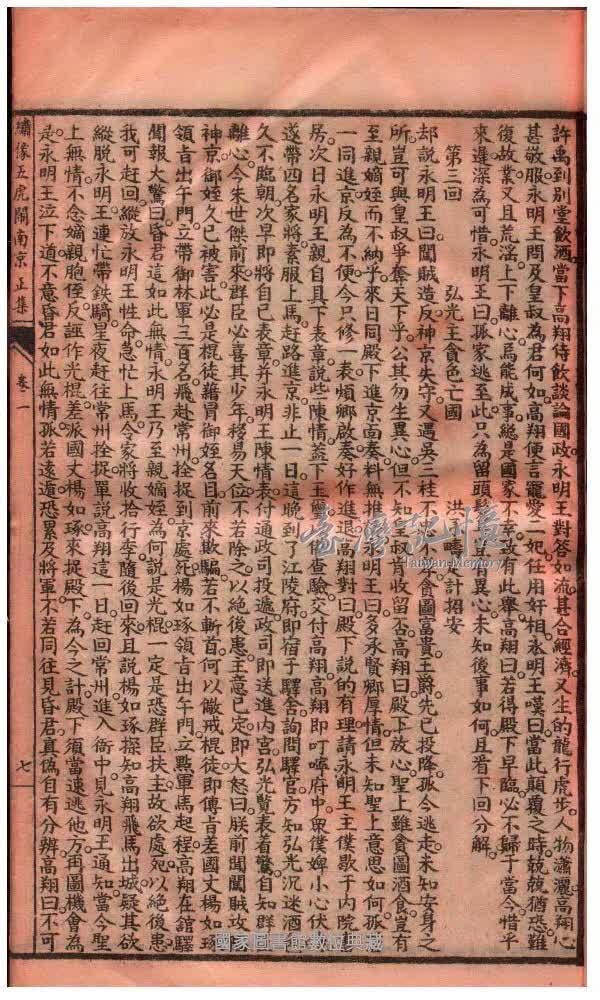 許禹到別堂飲酒當下高翔侍飲談論國政永明王對答如流甚合經濟又生的龍行虎步人物瀟灑高翔心
甚敬服永明王問及皇叔為君何如高翔便言寵愛二妃任用奸相永明王嘆曰當此顛覆之時兢兢猶恐難
復故業又且荒淫上下離心焉能成事總是國家不幸故有此舉高翔曰若得殿下早臨必不歸于當今惜乎
來遲深為可惜永明王曰孤家逃至此只為留頭異心未知後事如何且看下回分解
第三回 弘光王貪色亡國 洪承疇計招安
却說永明王曰闖賊造反神京失守又遇吳三桂不貪圖富貴王爵先已投降孤今逃走未知安身之
所豈可與皇叔爭奪天下乎公其勿生異心但不知皇叔肯收留否高翔曰殿下放心聖上雖貪圖酒食豈有
至親嫡姪而不納乎來日同殿下進京面奏料無推永明王曰多承賢卿厚情但未知聖上意思如何孤
一同進京反為不便今只修一表煩卿啟奏好作進退高翔對曰殿下說的有理請永明王主僕歇于內院
房次日永明王親自具下表章說些陳情蓋下王璽查驗交付高翔高翔即叮嚀府中衆僕婢小心伏
遂帶四名家將素服上馬赶路進京非止一日這晚到了江陵府即宿子驛舍詢問驛官方知弘光沉迷酒
久不臨朝次早即將自已表章并永明王陳情表付通政司投遞政司即送進內宮弘光覽表着驚自知群
離心今朱世傑前來群臣必喜其少年移易天位不若除之以絕後患主意已定即大怒曰朕前聞闖賊攻
神京御姪久已被害此必是棍徒藉冒御姪名目前來欺騙若不斬首何以儆戒棍徒即傅旨差國丈楊如琢
領旨出午門立帶御林軍三百名飛赴常州捡捉到京處死楊如琢領旨出午門立點軍馬起程高翔在舘驛
聞報大驚曰昏君這如此無情永明王乃至親嫡姪為何說是光棍一定是恐群臣扶主故欲處死以絕後患
我可赶回縱放永明王性命急忙上馬令家將收拾行李隨後回來且說楊如琢探知高翔飛馬出城疑其欲
縱脫永明王連忙帶鉄騎星夜赶往常州捡捉單說高翔這一日赶回常州進入衙中見永明王通知當今聖
上無情不念嫡親胞侄反誣作光棍差派國丈楊如琢來捉殿下為今之計殿下須當速逃他方再圖機會為
是永明王泣下道不意昏君如此無情孤若遠遁恐累及將軍不若同往見昏君真偽自有分辨高翔曰不可
繡像五虎鬧南京正集
卷一
七
臺灣記憶
Taiwan Memory
國家圖書館數位典藏